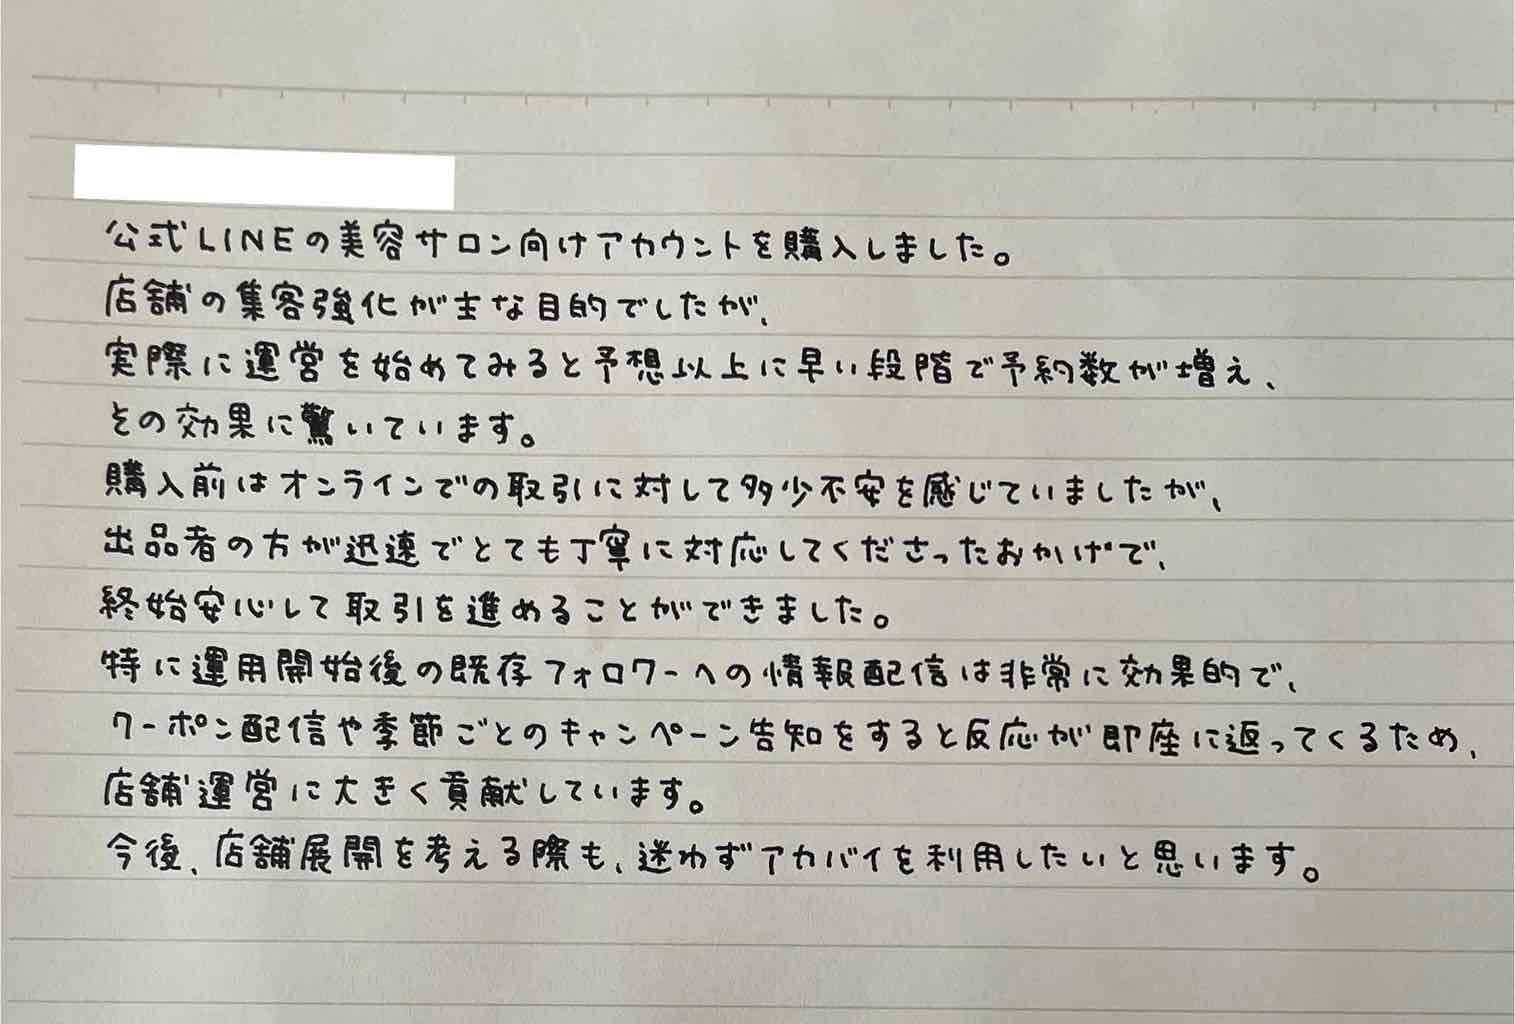 公式LINEの美容サロン向けアカウントを購入しました。
店舗の集客強化が主な目的でしたが、
実際に運営を始めてみると予想以上に早い段階で予約数が増え、
その効果に驚いています。
購入前はオンラインでの取引に対して多少不安を感じていましたが、
出品者の方が迅速でとても丁寧に対応してくださったおかげで、
終始安心して取引を進めることができました。
特に運用開始後の既存フォロワーへの情報配信は非常に効果的で、
クーポン配信や季節ごとのキャンペーン告知をすると反応が即座に返ってくるため、
店舗運営に大きく貢献しています。
今後、店舗展開を考える際も、迷わずアカバイを利用したいと思います。